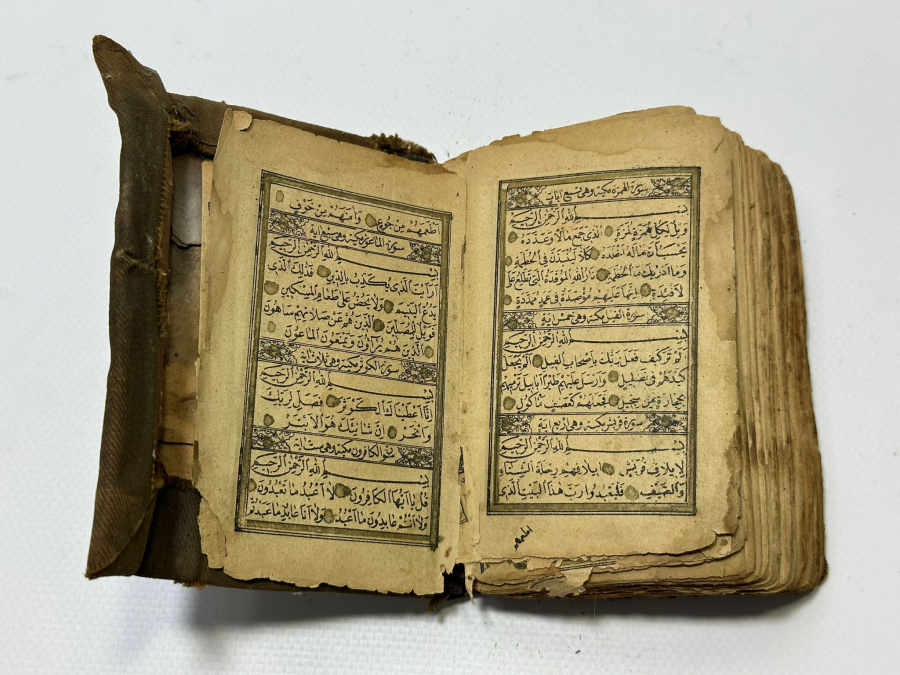 سورة الهمزة مكية وهي تسع ايات
بسم الله الرحمن الرحيم
ويل لكل همزة لمزة الذي جمع مالا وعدده
يحسب ان ماله اخلده كلا لينبذن في الحطمة
وما ادريك ما الحطمة نار الله الموقدة التي تطلع على
الافئدة انها عليهم مؤصدة في عمد ممددة
سورة الفيل مكية وهي خمس اية
بسم الله الرحمن الرحيم
الم تر كيف فعل ربك باصحاب الفيل الم يجعل
كيدهم في تضليل وارسل عليهم طيرا ابابيل ترميهم
بحجارة من سجيل فجعلهم كعصف مأكول
سورة قريش مكية وهي اربع اية
بسم الله الرحمن الرحيم
لايلاف قريش ايلافهم رحلة الشتاء
والصيف فليعبدوا رب هذا البيت الذي
اطعمهم
اطعمهم من جوع وامنهم من خوف
سورة الماعون مكية وهي سبع اية
بسم الله الرحمن الرحيم
ارايت الذي يكذب بالدين فذلك الذي
يدع اليتيم ولا يحض على طعام المسكين
فويل للمصلين الذين هم عن صلاتهم ساهون
الذين هم يراؤن ويمنعون الماعون
سورة الكوثر مكية وهي ثلاث اية
بسم الله الرحمن الرحيم
انا اعطيناك الكوثر فصل لربك
وانحر ان شانئك هو الابتر
سورة الكافرون مكية وهي ست اية
بسم الله الرحمن الرحيم
قل يا ايها الكافرون لا اعبد ما تعبدون
ولا انتم عابدون ما اعبد ولا انا عابد ما عبدتم